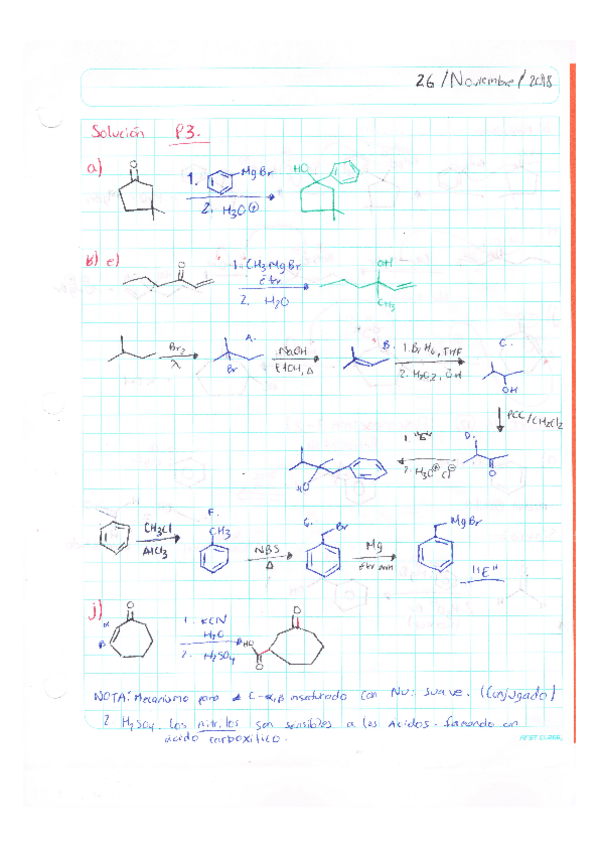 26/Noviembre/2018
Solución P3.
a)
O
1. MgBr
2. H3O⊕
HO
b) e)
O
1. CH3MgBr
éter
2. H2O
OH
CH3
Br2
λ
A.
Br
NaOH
EtOH, Δ
B.
2. H2O2, OH
C.
OH
PCC/CH2Cl2
D.
O
1. "E"
2. H3O⊕ Cl⊖
HO
CH3Cl
AlCl3
F.
CH3
NBS
Δ
G.
Br
Mg
MgBr
"E"
j)
O
α
β
1. KCN
H2O
2. H2SO4
HO
O
O
NOTA: Mecanismo para C-α,β insaturado con Nu: suave. (Conjugado)
2 H2SO4. Los nitrilos son sensibles a los Acidos. formando un
ácido carboxilico.